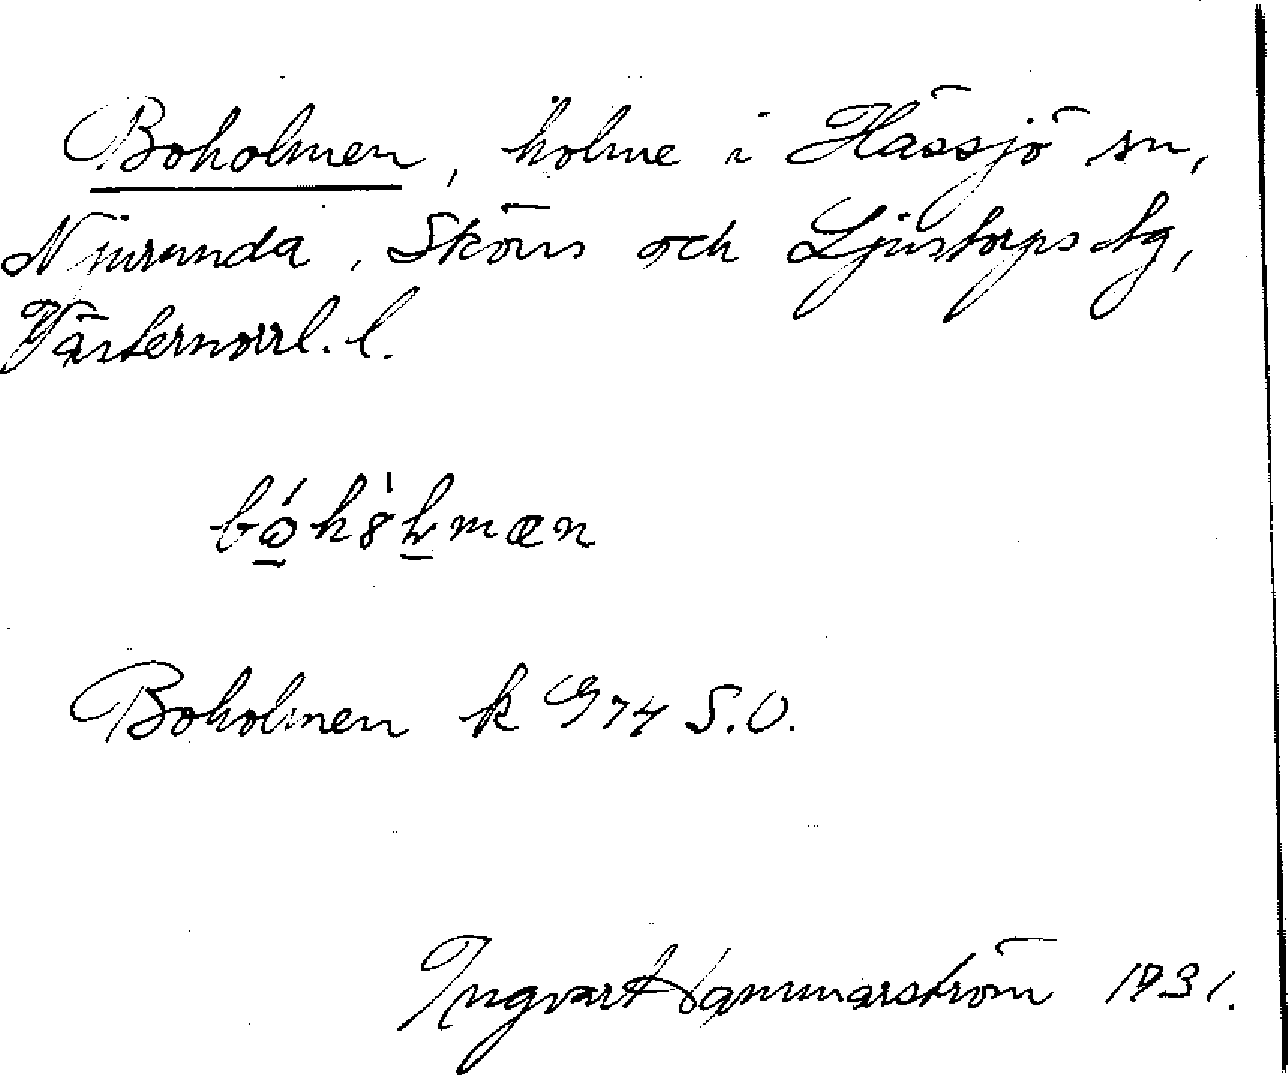 Boholmen, holme i Hässjö sn,
Njurunda, Sköns och Ljustorps tg,
Västernorrl. l.
Boholmen k G 74 S.O.
Ingvar Hammarström 1931.